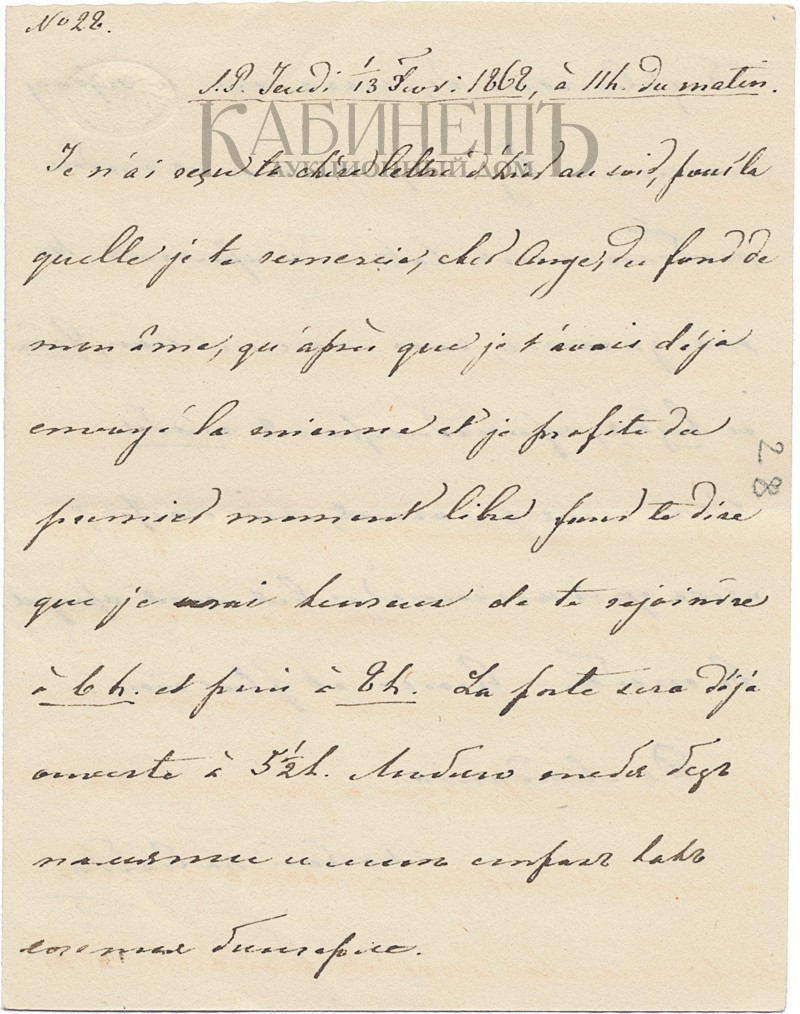 No 28.
S.P. Jeudi 1/13 Fevr: 1868, à 11h. du matin.
КАБИНЕТЪ
АУКЦИОННЫЙ ДОМ
Je n'ai reçu ta chère lettre d'hier au soir, pour la
quelle je te remercie, cher Ange, du fond de
mon âme, qu'après que je t'avais déja
envoyé la mienne et je profite du
premier moment libre pour te dire
que je serai heureux de te rejoindre
à 6 h. et puis à 8h. La porte sera déjà
ouverte à 5 1/2 h. Люблю тебя безъ
памяти и
28